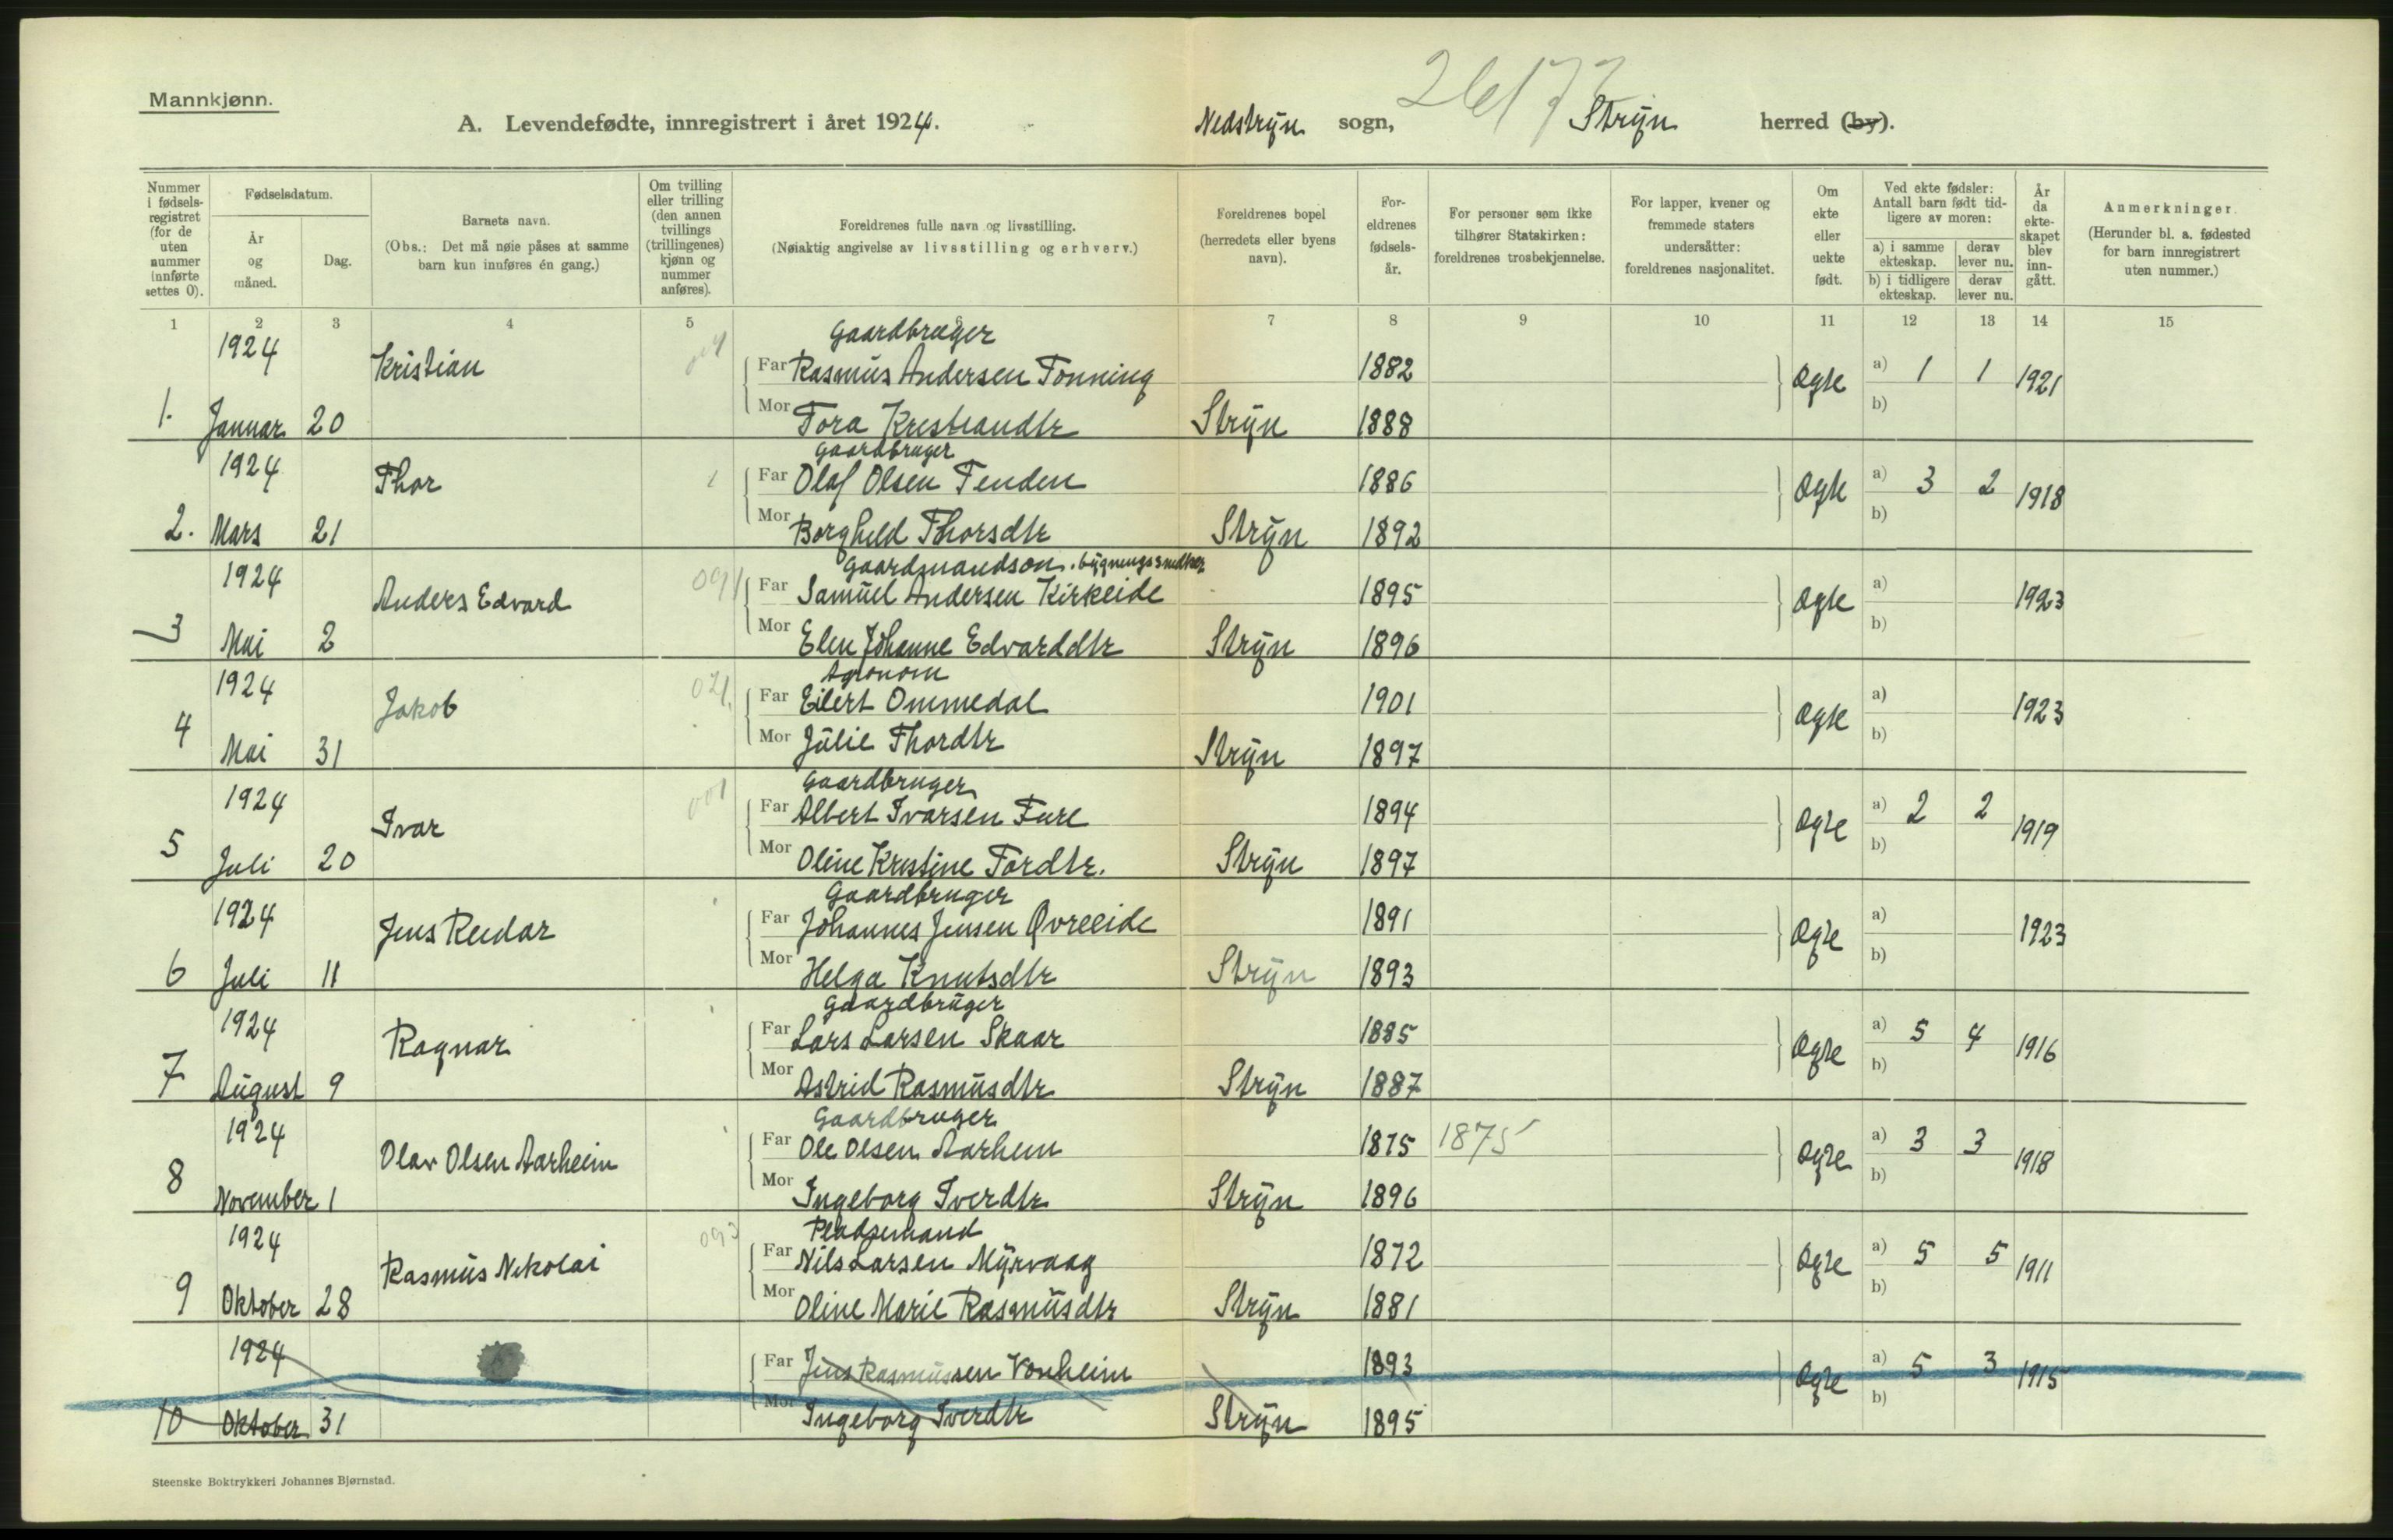 Mannkjønn.
A. Levendefødte, innregistrert i året 1924.
Nedstryn sogn, Stryn herred (by).
2617
Nummer i fødselsregistret (for de uten nummer innførte settes 0).
Fødselsdatum.
År og måned.
Dag.
Barnets navn.
(Obs.: Det må nøie påses at samme barn kun innføres én gang.)
Om tvilling eller trilling (den annen tvillings (trillingenes) kjønn og nummer anføres).
Foreldrenes fulle navn og livsstilling.
(Nøiaktig angivelse av livsstilling og erhverv.)
Foreldrenes bopel (herredets eller byens navn).
Foreldrenes fødselsår.
For personer som ikke tilhører Statskirken: foreldrenes trosbekjennelse.
For lapper, kvener og fremmede staters undersåtter: foreldrenes nasjonalitet.
Om ekte eller uekte født.
Ved ekte fødsler: Antall barn født tidligere av moren:
a) i samme ekteskap. derav lever nu.
b) i tidligere ekteskap. derav lever nu.
År da ekteskapet blev inngått.
Anmerkninger.
(Herunder bl. a. fødested for barn innregistrert uten nummer.)
1 2 3 4 5 6 7 8 9 10 11 12 13 14 15
Gaardbruger
1924 Kristian Far Rasmus Andersen Tonning 1882 Ægte a) 1 1 1921
1. Januar 20 Mor Tora Kristiandtr Stryn 1888 b)
Gaardbruger
1924 Thor 1 Far Olaf Olsen Tenden 1886 Ægte a) 3 2 1918
2. Mars 21 Mor Borghild Thorsdtr Stryn 1892 b)
Gaardmandson. bygningssnedker
1924 Anders Edvard 091 Far Samuel Andersen Kirkeide 1895 Ægte a) 1923
3 Mai 2 Mor Elen Johanne Edvarddtr Stryn 1896 b)
Agronom
1924 Jakob 021 Far Eilert Ommedal 1901 Ægte a) 1923
4 Mai 31 Mor Julie Thordtr Stryn 1897 b)
Gaardbruger
1924 Ivar 001 Far Albert Ivarsen Fure 1894 Ægte a) 2 2 1919
5 Juli 20 Mor Oline Kristine Tordtr. Stryn 1897 b)
Gaardbruger
1924 Jens Reidar Far Johannes Jensen Øvreeide 1891 Ægte a) 1923
6 Juli 11 Mor Helga Knutsdtr Stryn 1893 b)
Gaardbruger
1924 Ragnar Far Lars Larsen Skaar 1885 Ægte a) 5 4 1916
7 August 9 Mor Astrid Rasmusdtr Stryn 1887 b)
Gaardbruger
1924 Olav Olsen Aarheim Far Ole Olsen Aarheim 1875 1875 Ægte a) 3 3 1918
8 November 1 Mor Ingeborg Iverdtr Stryn 1896 b)
Pladsemand
1924 Rasmus Nikolai 093 Far Nils Larsen Myrvaag 1872 Ægte a) 5 5 1911
9 Oktober 28 Mor Oline Marie Rasmusdtr Stryn 1881 b)
1924 Far Jens Rasmussen Vonheim 1893 Ægte a) 5 3 1915
10 Oktober 31 Mor Ingeborg Iverdtr Stryn 1895 b)
Steenske Boktrykkeri Johannes Bjørnstad.